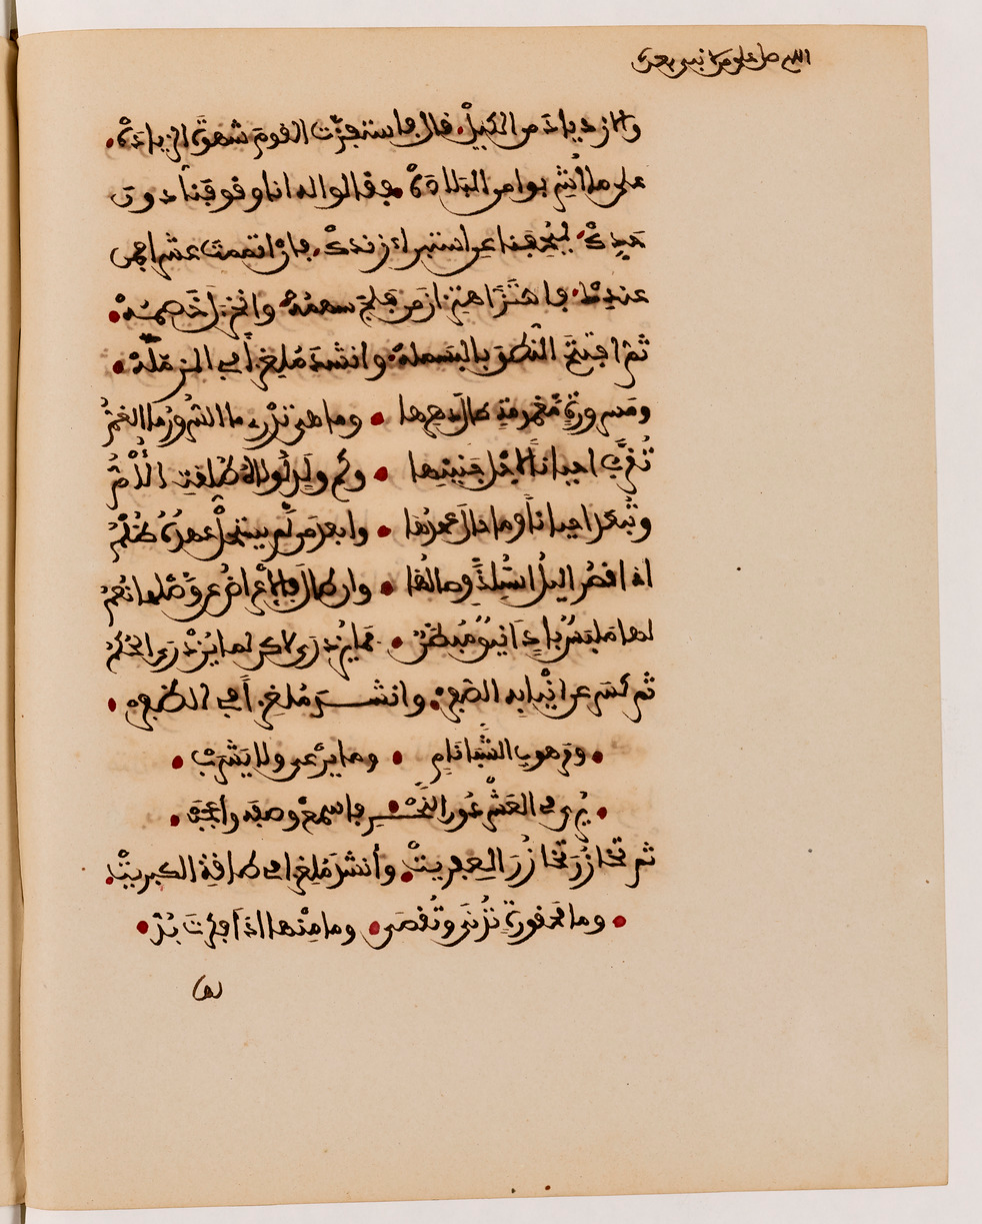 اللهم صل على من لا نبي بعده
والازدياد من الكيل. قال فاستفزت القوم شهوة الزيادة.
على ما أشربوا من البلادة. فقالوا له ان وقوفنا دون
حدك. ليفحمنا عن استيراء زندك. فان اتممت عشرا فمن
عندك. فاهتز اهتزاز من فلج سهمه وانخزل خصمه.
ثم افتتح النطق بالبسملة. وانشد ملغزا في المزملة.
ومسرورة مغمومة طال دهرها . وما هي تدري ما السرور وما الغم
تقرب احيانا لاجل جنينها . وكم ولد لولاه طلقت الأم
وتبعد احيانا وما حال عهدها . وابعاد من لم يستحل عهده ظلم
اذا قصر اليل استلذ وصالها . وان طال فالاعراض عن وصلها غنم
لها ملبس باد انيق مبطن . بما يزدرى لاكن لما يزدرى الحكم
ثم كشر عن انيابه الصفر. وانشد ملغزا في الظفر.
. ومرهوب الشبا نام . وما يرعى ولا يشرب .
. يرى في العشر دون النحـر . فاسمع وصفه واعجب .
ثم تخازر تخازر العفريت. وأنشد ملغزا في طاقة الكبريت.
. وما محقورة تدنى وتقصى . وما منها اذا فكرت بد .
لها